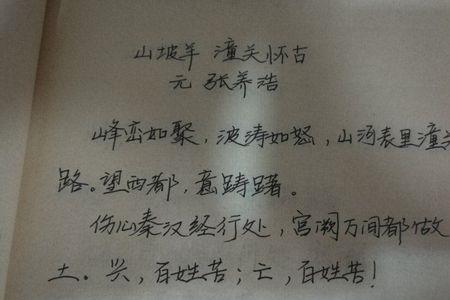 山坡羊 潼关怀古
元 张养浩
峰峦如聚，波涛如怒，山河表里潼关
路。望西都，意踌躇。
伤心秦汉经行处，宫阙万间都做
土。兴，百姓苦；亡，百姓苦！